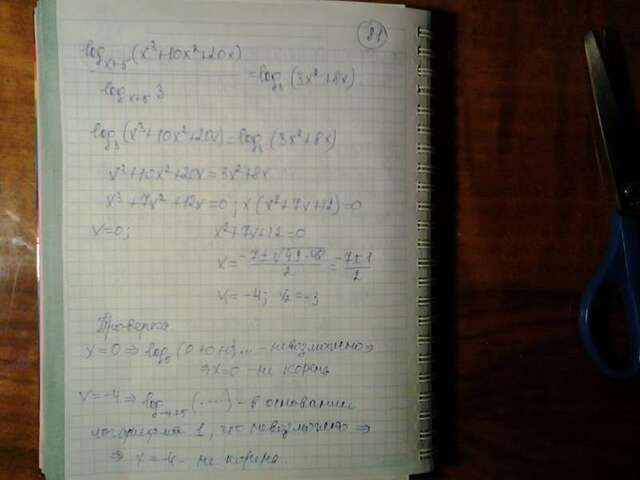 21
log_{x+5}(x³+10x²+20x) / log_{x+5} 3 = log₃(3x²+8x)
log₃(x³+10x²+20x) = log₃(3x²+8x)
x³+10x²+20x=3x²+8x
x³+7x²+12x=0; x(x²+7x+12)=0
x=0; x²+7x+12=0
x= (-7±√49-48)/2 = (-7±1)/2
x=-4; x₂=-3
Проверка
x=0 ⇒ log₅(0+0+0)... - невозможно ⇒
⇒ x=0 - не корень
x=-4 ⇒ log_{-4+5}(....) - в основании
логарифма 1, что невозможно ⇒
⇒ x=-4 - не корень